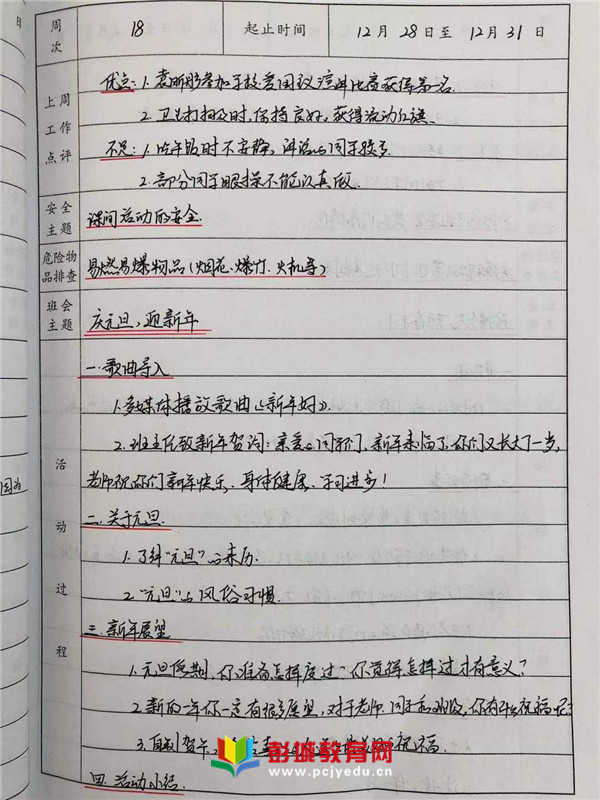 周次 18 起止时间 12月28日至12月31日
上周工作点评
优点:1.袁昕彤参加学校爱国演讲比赛获得第名.
2.卫生打扫及时,保持良好,获得流动红旗.
不足:1.吃午饭时不安静,讲话的同学较多.
2.部分同学眼操不能认真做.
安全主题 课间活动的安全.
危险物品排查 易燃易爆物品(烟花、爆竹、火机等)
班会主题 庆元旦,迎新年
活动过程
一.歌曲导入
1.多媒体播放歌曲《新年好》.
2.班主任致新年贺词:亲爱的同学们,新年来临了,你们又长大了一岁,
老师祝你们新年快乐、身体健康、学习进步!
二.关于元旦.
1.了解“元旦”的来历.
2.“元旦”的风俗习惯.
三.新年展望
1.元旦假期,你准备怎样度过?你觉得怎样过才有意义?
2.新的一年你一定有很多展望,对于老师、同学和班级,你有什么祝福呢?
3.自制贺卡, 祝福.
四.活动小结.
因为
彭城教育网
www.pcjyedu.cn